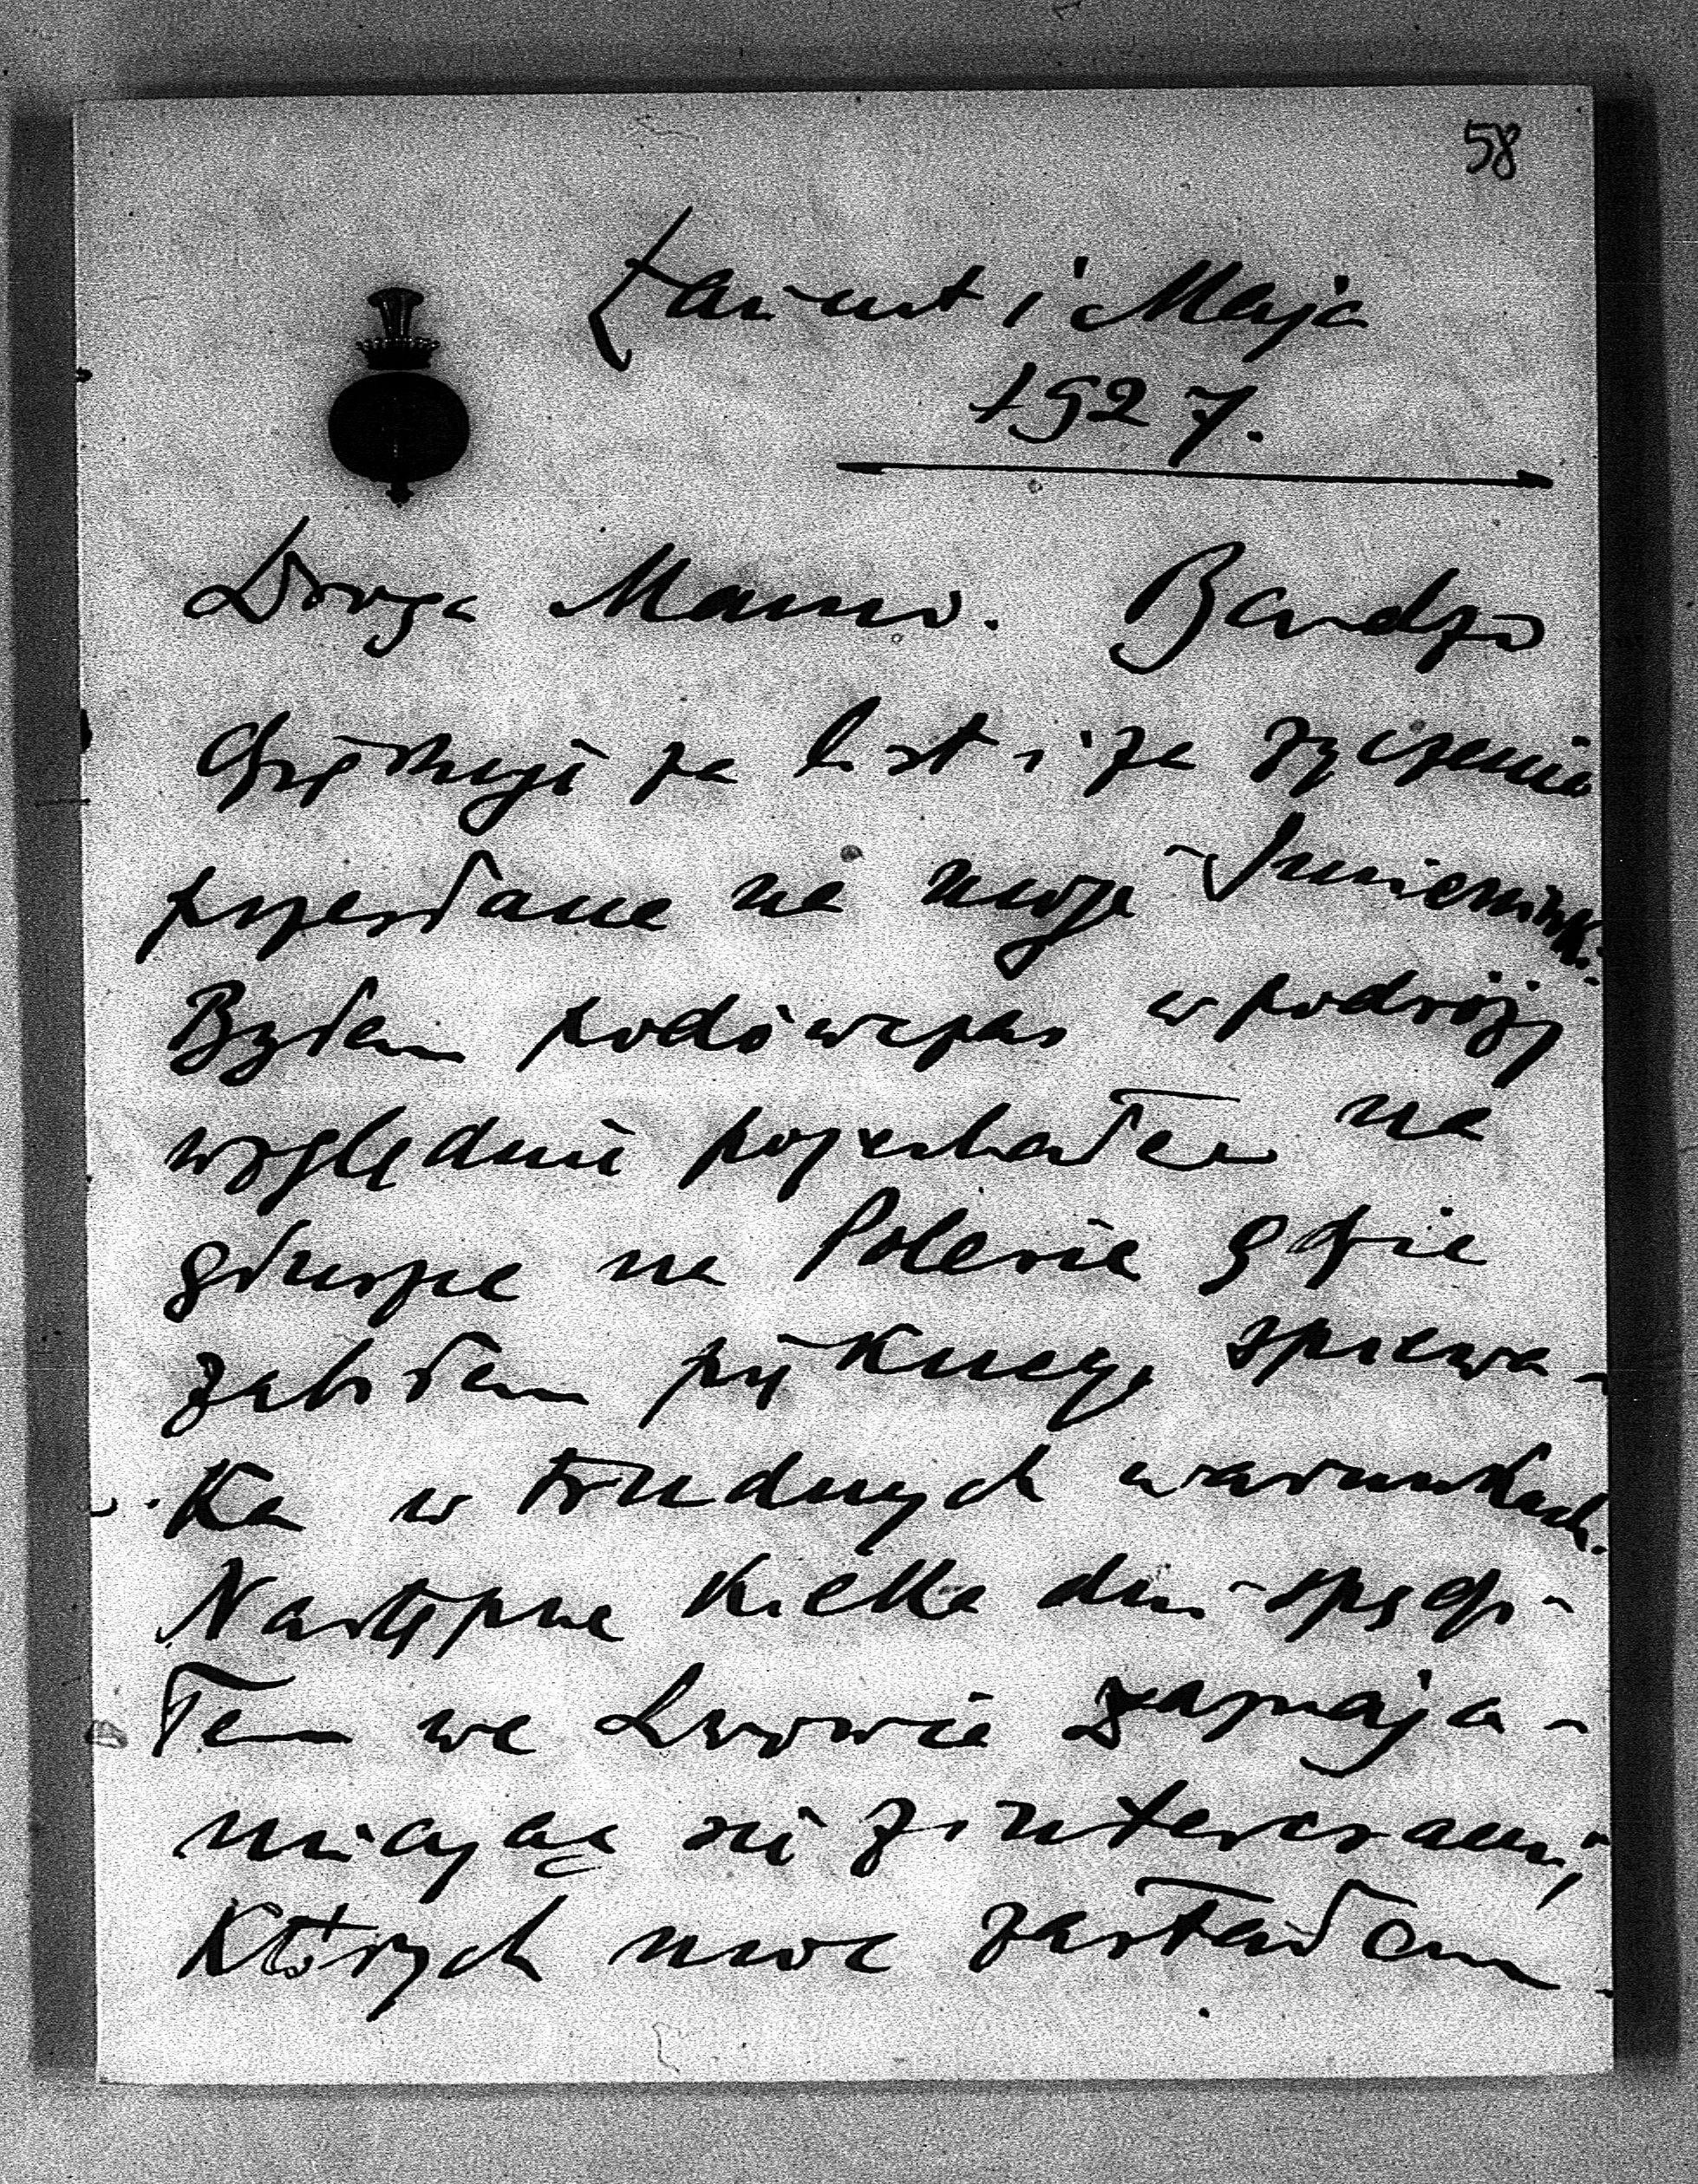 58
Łańcut 1 Maja
1927.
Droga Mamo. Bardzo
dziękuję za list i za życzenia
przesłane na moje Imieniny.
Byłem podówczas w podróży
względnie pojechałem na
głuszce na Polesie gdzie
zabiłem pięknego śpiewa-
ka w trudnych warunkach.
Następne kilka dni spędzi-
łem we Lwowie zaznaja-
miając się z interesami,
których moc zastałem